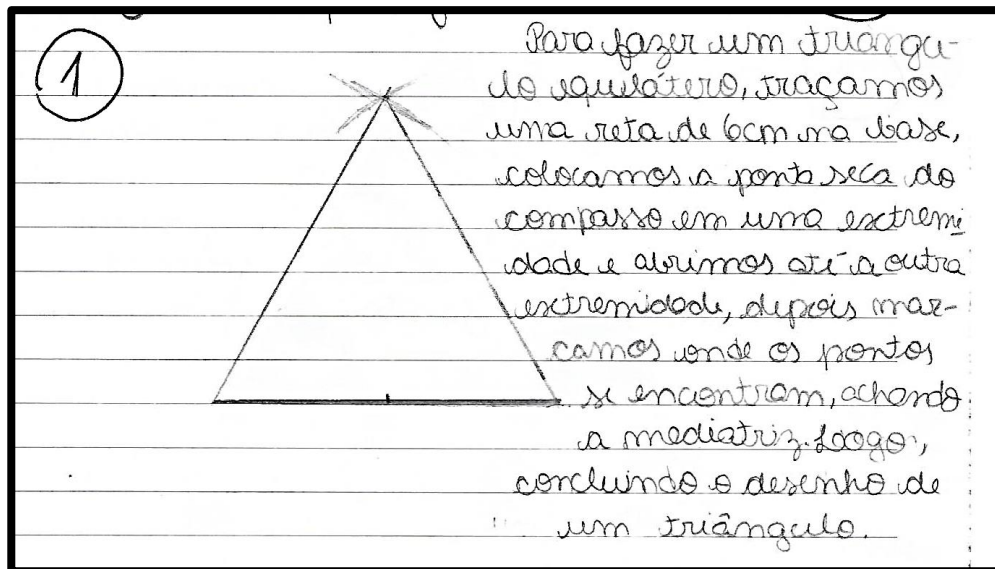 1
Para fazer um triangu-
lo equilátero, traçamos
uma reta de 6cm na base,
colocamos a ponta seca do
compasso em uma extremi
dade e abrimos até a outra
extremidade, depois mar-
camos onde os pontos
se encontram, achando
a mediatriz. Loogo,
concluindo o desenho de
um triângulo.